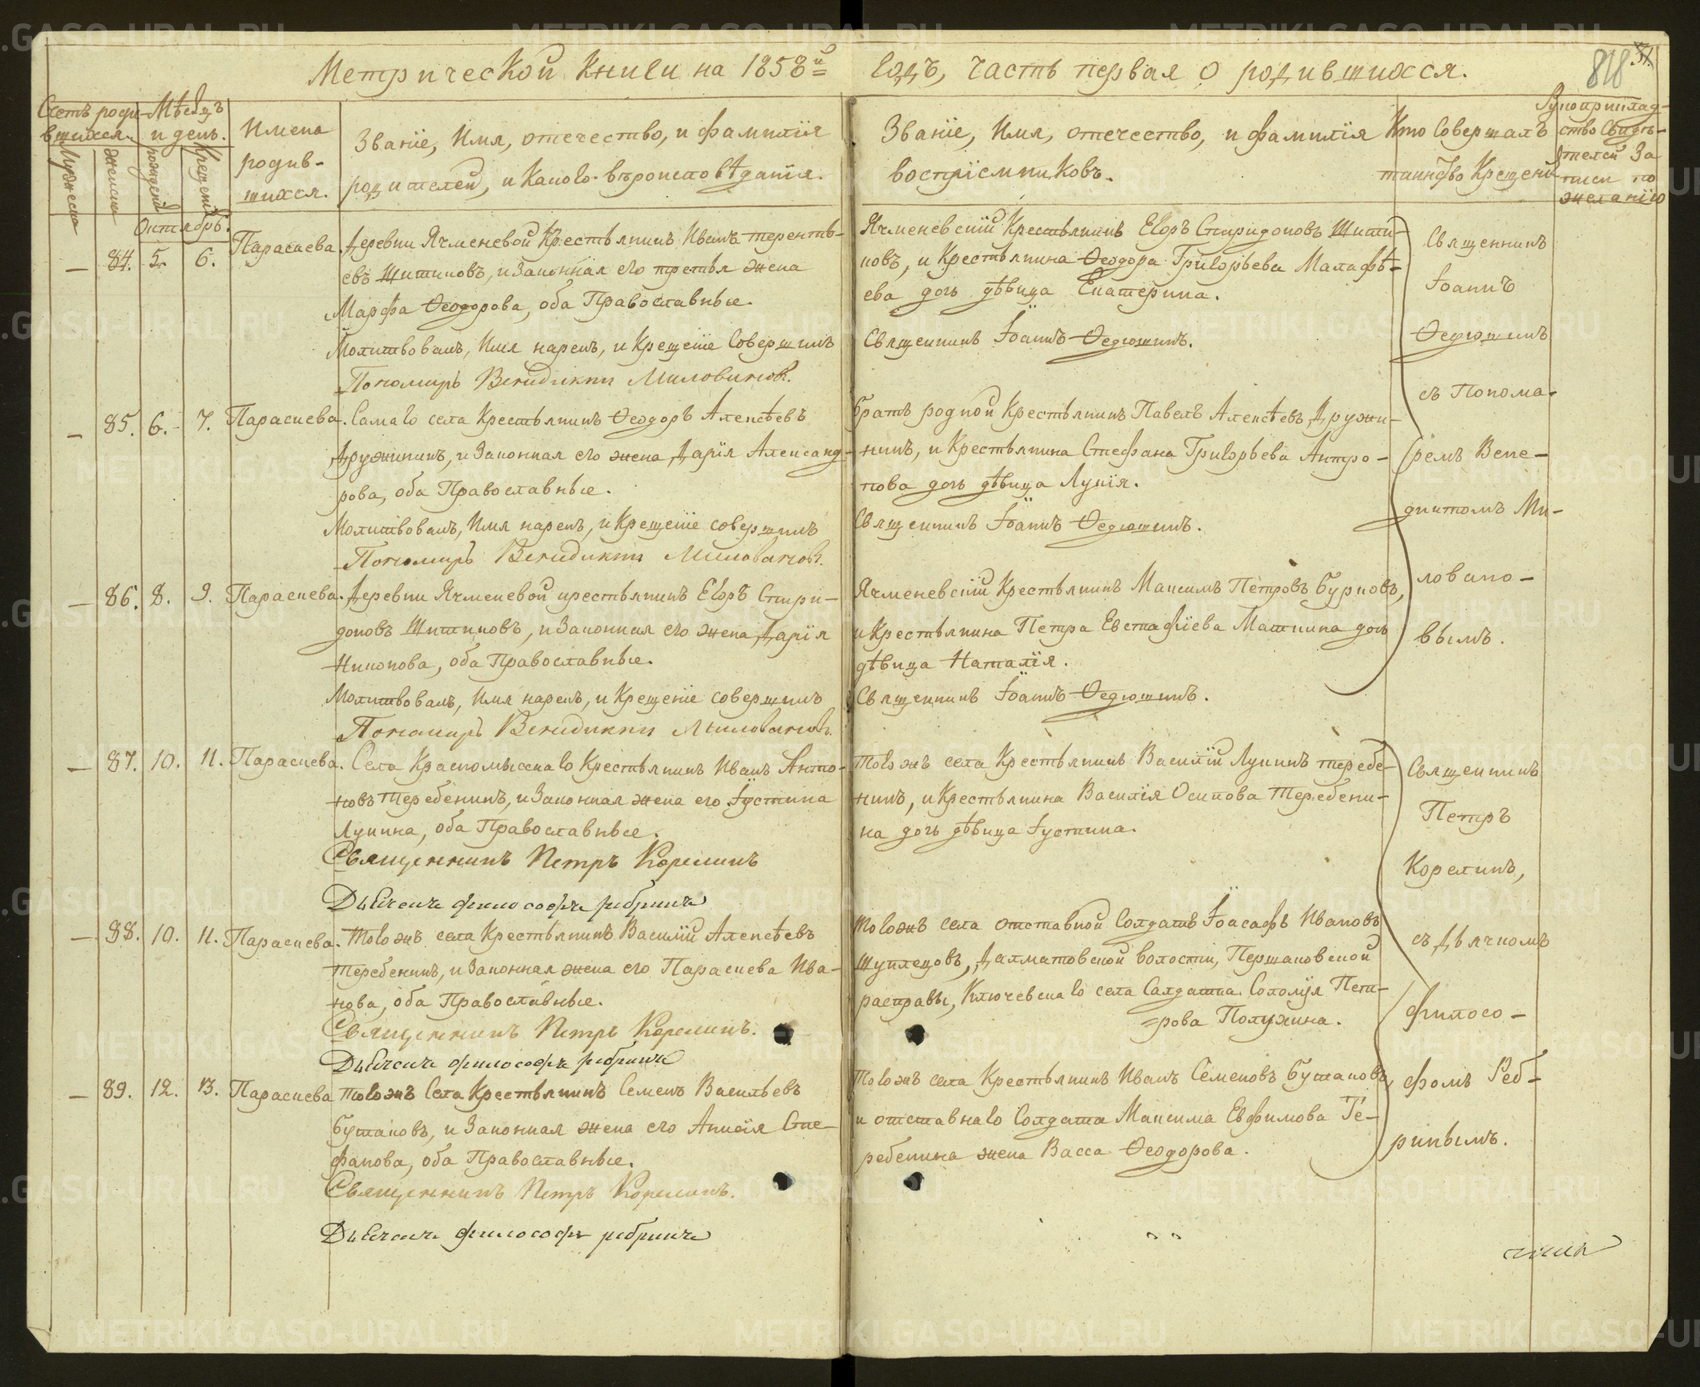 Метрической книги на 1858й годъ, часть первая о родившихся.
818
Счетъ роди-
вшихся.
Мѣсяцъ
и день.
Имена
родив-
шихся.
Званіе, Имя, отечество, и фамилія
родителей, и какого вѣроисповѣданія.
Званіе, Имя, отечество, и фамилія
воспріемниковъ.
Кто совершалъ
таинство Крещенія
Рукоприклад-
ство свидѣ-
телей за
писи по
желанію
Мужеска
Женска
рожденія
Крещенія
Октябрь.
— 84. 5. 6. Параскева. Деревни Ячменевой Крестьянинъ Иванъ Теренть-
евъ Шишиповъ, и законная его третья жена
Марфа Ѳеодорова, оба Православные.
Молитвовалъ, Имя нарекъ, и Крещеніе Совершилъ
Пономарь Венидиктъ Миловановъ.
Ячменевскій Крестьянинъ Егоръ Спиридоновъ Шиши-
повъ, и Крестьянина Ѳеодора Григорьева Малафѣ-
ева дочь дѣвица Екатерина.
Священникъ Іоаннъ Ѳедюшинъ.
— 85. 6. 7. Параскева. Самаго села Крестьянинъ Ѳеодоръ Алексѣевъ
Дружининъ, и Законная его жена Дарія Александ-
рова, оба Православные.
Молитвовалъ, Имя нарекъ, и Крещеніе совершилъ
Пономарь Венидиктъ Миловановъ.
братъ родной Крестьянинъ Павелъ Алексѣевъ Дружи-
нинъ, и Крестьянина Стефана Григорьева Антро-
пова дочь дѣвица Лукія.
Священникъ Іоаннъ Ѳедюшинъ.
— 86. 8. 9. Параскева. Деревни Ячменевой крестьянинъ Егоръ Спири-
доновъ Шишиповъ, и Законная его жена Дарія
Никонова, оба Православные.
Молитвовалъ, Имя нарекъ, и Крещеніе совершилъ
Пономарь Венидиктъ Миловановъ.
Ячменевскій Крестьянинъ Максимъ Петровъ Бурковъ,
и Крестьянина Петра Евстафіева Машкина дочь
дѣвица Наталія.
Священникъ Іоаннъ Ѳедюшинъ.
Священникъ
Іоаннъ
Ѳедюшинъ
съ Понома-
ремъ Вене-
диктомъ Ми-
ловано-
вымъ.
— 87. 10. 11. Параскева. Села Красномысскаго Крестьянинъ Иванъ Анто-
новъ Теребенинъ, и Законная жена его Іустина
Лукина, оба Православные.
Священникъ Петръ Корелинъ
Дьячекъ философъ ребринъ
Тогожъ села Крестьянинъ Василій Лукинъ теребе-
нинъ, и Крестьянина Василія Осипова Теребени-
на дочь дѣвица Іустина.
— 88. 10. 11. Параскева. Тогожъ села Крестьянинъ Василій Алексѣевъ
Теребенинъ, и Законная жена его Параскева Ива-
нова, оба Православные.
Священникъ Петръ Корелинъ.
Дьячекъ философъ ребринъ
Тогожъ села отставной Солдатъ Іоасафъ Ивановъ
Шуплецовъ, Далматовской волости, Першановской
расправы, Ключевскаго села Салдатка Соломія Пет-
рова Полухина.
— 89. 12. 13. Параскева Тогожъ Села Крестьянинъ Семенъ Васильевъ
бутаковъ, и Законная жена его Анисія Сте-
фанова, оба Православные.
Священникъ Петръ Корелинъ.
Дьячекъ философъ ребринъ
Тогожъ села Крестьянинъ Иванъ Семеновъ бутаковъ,
и отставнаго Солдата Максима Евфимова Те-
ребенина жена Васса Ѳеодорова.
Священникъ
Петръ
Корелинъ,
съ Дьячкомъ
филосо-
фомъ Реб-
ринымъ.
METRIKI.GASO-URAL.RU